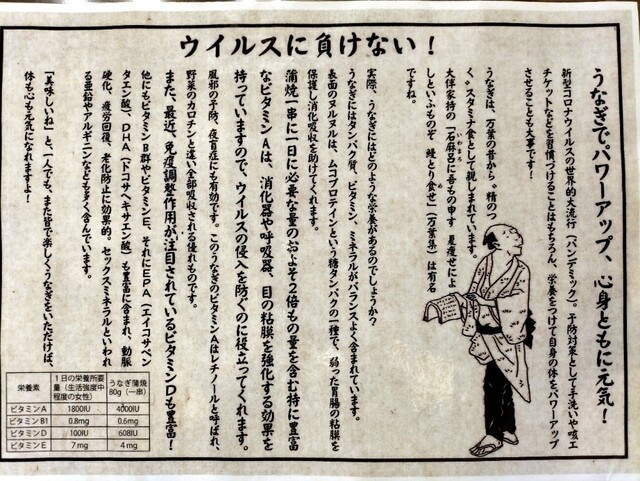 ウイルスに負けない！
うなぎでパワーアップ、心身ともに元気！
新型コロナウイルスの世界的大流行（パンデミック）。予防対策として手洗いや咳エ
チケットなどを習慣づけることはもちろん、栄養をつけて自身の体をパワーアップ
させることも大事です！
うなぎは、万葉の昔から〝精のつ
く〟スタミナ食として親しまれています。
大伴家持の「石麻呂に吾もの申す 夏痩せによ
いわまろ
しといふものぞ 鰻とり食せ」（万葉集）は有名
ですね。
実際、うなぎにはどのような栄養があるのでしょうか？
うなぎにはタンパク質、ビタミン、ミネラルがバランスよく含まれています。
表面のヌルヌルは、ムコプロテインという糖タンパクの一種で、弱った胃腸の粘膜を
保護し消化吸収を助けてくれます。
蒲焼一串に一日に必要な量のおよそ2倍もの量を含む特に豊富
なビタミンAは、消化器や呼吸器、目の粘膜を強化する効果を
持っていますので、ウイルスの侵入を防ぐのに役立ってくれます。
風邪の予防、夜盲症にも有効です。このうなぎのビタミンAはレチノールと呼ばれ、
野菜のカロチンと違い全部吸収される優れものです。
また、最近、免疫調整作用が注目されているビタミンDも豊富！
他にもビタミンB群やビタミンE、それにEPA（エイコサペン
タエン酸）、DHA（ドコサヘキサエン酸）も豊富に含まれ、動脈
硬化、疲労回復、老化防止に効果的。セックスミネラルといわれ
る亜鉛やアルギニンなども多く含んでいます。
「美味しいね」と、一人でも、また皆で楽しくうなぎをいただけば、
体も心も元気になれますよ！
栄養素 1日の栄養所要量（生活強度中程度の女性） うなぎ蒲焼80g（一串）
ビタミンA 1800IU 4000IU
ビタミンB1 0.8mg 0.6mg
ビタミンD 100IU 608IU
ビタミンE 7mg 4mg